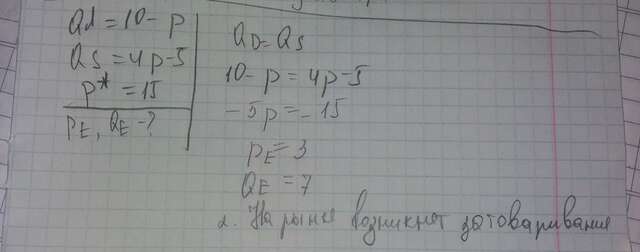 Qd = 10 - p
Qs = 4p-5
p* = 15
PE, QE -?
QD = QS
10 - p = 4p-5
- 5p = - 15
PE = 3
QE = 7
2. На рынке возникнет затоваривание